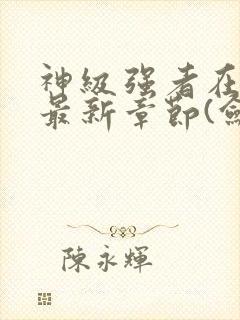 神級强者在
最新章節(
陳永輝